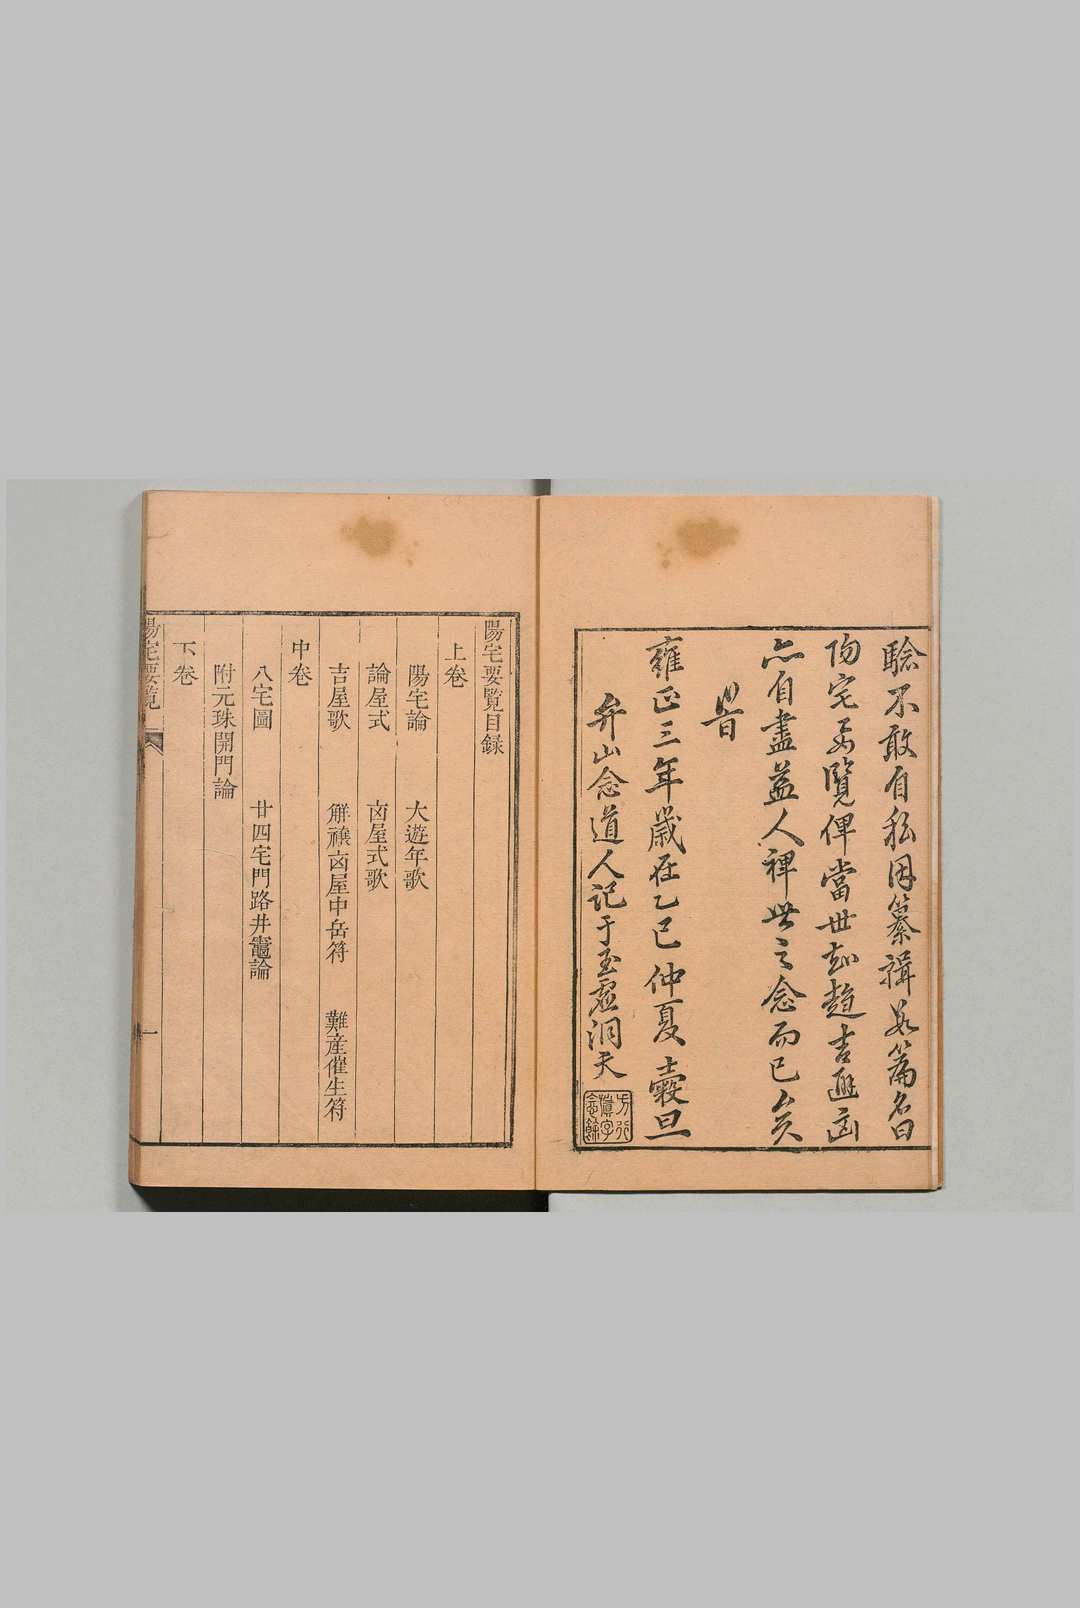 驗不敢自私因纂輯篇名曰
陽宅要覽俾當世知趨吉避凶
亦自盡益人裨世之念而已矣
旹
雍正三年歲在乙巳仲夏穀旦
弁山念道人記于玉虛洞天
陽宅要覽目録
上卷
陽宅論 大遊年歌
論屋式 凶屋式歌
吉屋歌 觧禳凶屋中岳符 難産催生符
中卷
八宅圖 廿四宅門路井竈論
附元珠開門論
下卷
陽宅要覽 一